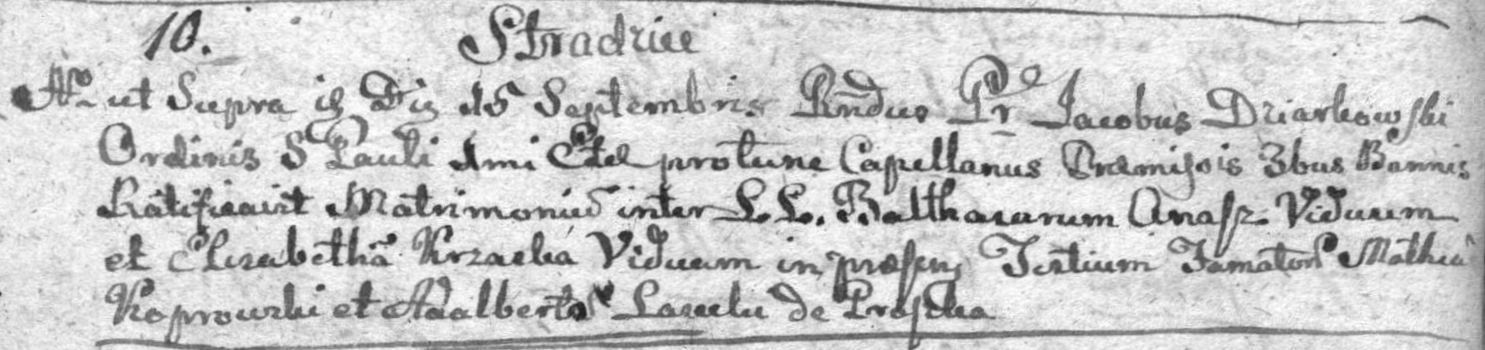 10. Stradzice
Ao ut Supra is Die 15 Septembris Rndus Pr Jacobus Dziarkowski
Ordinis S Pauli 1mi Ctae protunc Capellanus Premissis 3bus Bannis
Ratificavit Matrimoniū inter L. L. Balthasarum Anasz Viduum
et Elisabethā Krzacka Viduam in praesen Testium Famator Mathia
Koprowski et Adalberto Lazela de Praszka